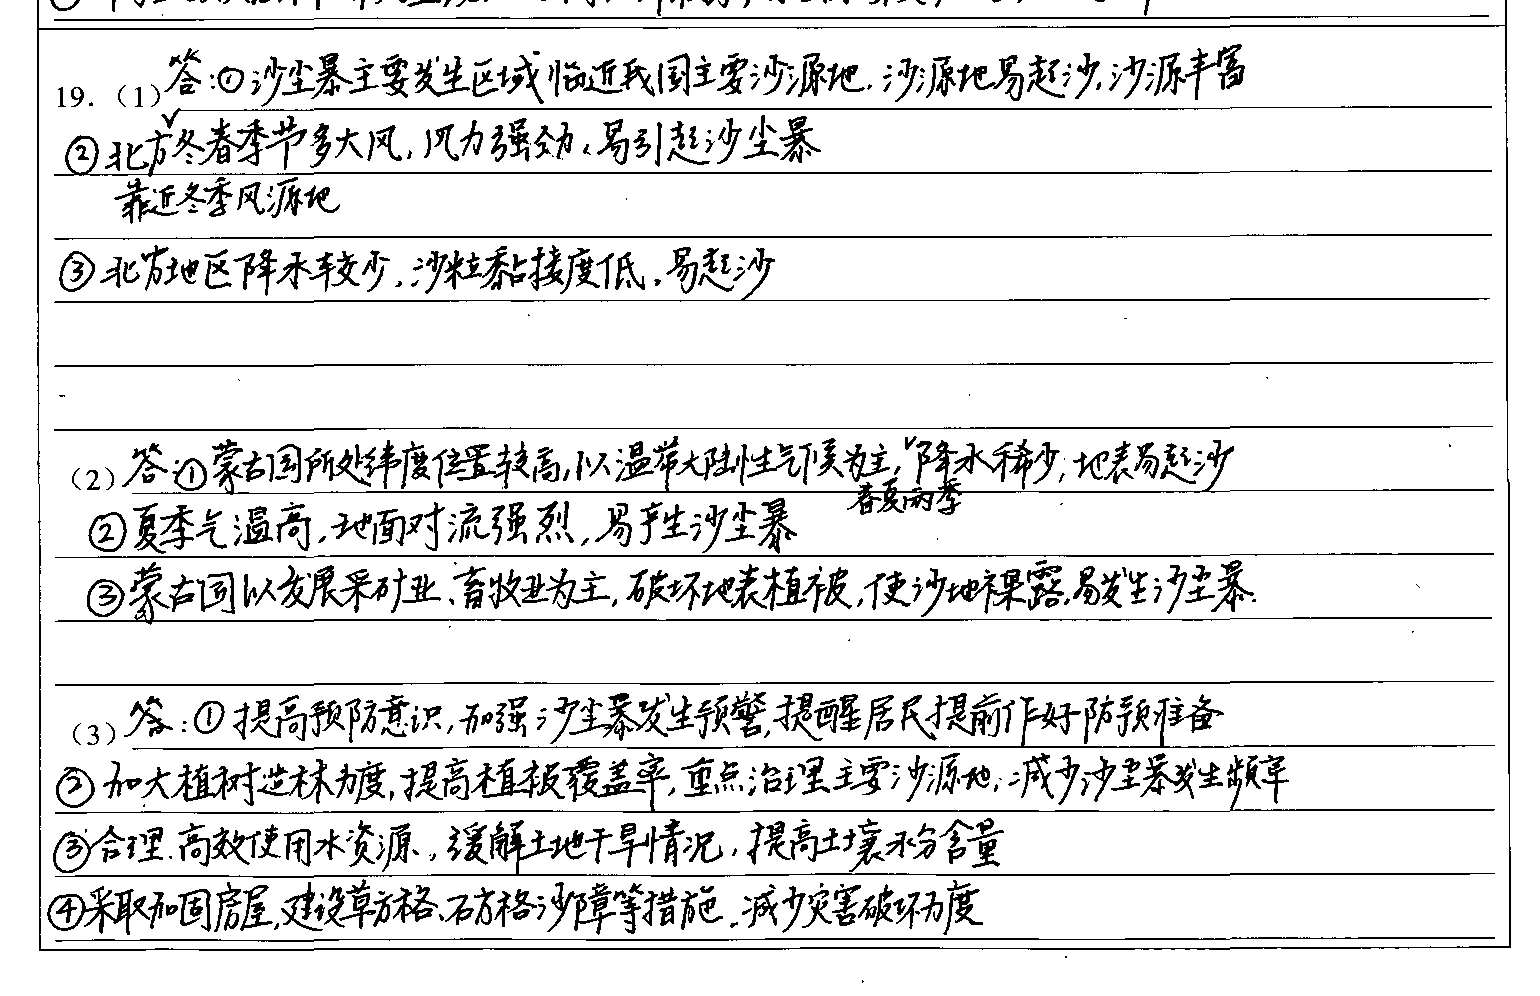 19.（1）答：①沙尘暴主要发生区域临近我国主要沙源地，沙源地易起沙，沙源丰富
②北方冬春季节多大风，风力强劲，易引起沙尘暴
靠近冬季风源地
③北方地区降水较少，沙粒黏接度低，易起沙
（2）答：①蒙古国所处纬度位置较高，以温带大陆性气候为主，降水稀少，地表易起沙
春夏两季
②夏季气温高，地面对流强烈，易产生沙尘暴
③蒙古国以发展采矿业、畜牧业为主，破坏地表植被，使沙地裸露，易发生沙尘暴.
（3）答：①提高预防意识，加强沙尘暴发生预警，提醒居民提前作好防预准备
②加大植树造林力度，提高植被覆盖率，重点治理主要沙源地，减少沙尘暴发生频率
③合理.高效使用水资源，缓解土地干旱情况，提高土壤水分含量
④采取加固房屋，建设草方格、石方格沙障等措施，减少灾害破坏力度